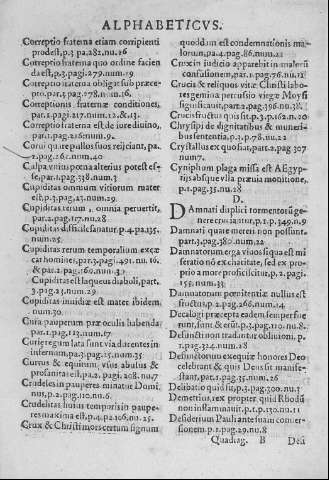 ALPHABETICVS.
Correptio fraterna etiam corripienti
prodest, p.3 pa.282. nu.26
Correptio fraterna quo ordine facien
da est, p.3. pagi.279. num.19
Correptio fraterna obligat sub præce-
pto. par.3. pag.278. num.16.
Correptionis fraternæ conditiones,
par.1. pagi.217. num.12. & .13.
Correptio fraterna est de iure diuino,
par.1. pag.216. num.9.
Corui quare pullos suos reijciant, pa.
1. pag.261. num.40
Culpa vnius pœna alterius potest es-
se, par.1. pag.338. num.3
Cupiditas omnium vitiorum mater
est, p.3. pag.27. num.23
Cupiditas rerum, omnia peruertit,
par.2. pag.17. nu.28
Cupiditas difficile sanatur. p.4. pa.135.
num.25.
Cupiditas rerum temporalium excæ
cat homines, par.3. pagi.491. nu.16.
& par.2. pag.160. num.30
Cupiditas est laqueus diaboli, part.
3. pag.23. num.29
Cupiditas inuidiæ est mater ibidem
num.30.
Cura pauperum præ oculis habenda
par.1. pag.113. num.17.
Curię regum lata sunt via ducentes in
infernum, pa.3. pag.15. num.35
Curuus & equinum, vius abulus &
profanitas est, pa.2. pagi.208. nu.7
Crudeles in pauperes minatur Domi
nus, p.2. pag.110. nu.6.
Crudelitas huius temporis in paupe-
res maxima est, p.4. pa.206. nu.25.
Crux & Christi mors certum signum
quoddam est condemnationis ma-
lorum, pa.4. pag.86. num.22
Crux in iudicio apparebit in malorũ
confusionem, par.1. pag.76. nu.12
Crucis & reliquos vitæ Christi labo-
res gemina percussio virgæ Moysi
significauit, part.2. pag.396. nu.38.
Crucis fructus quis sit. p.3. p.162. n.20
Chrysippi de dignitatibus & muneri-
bus sententia. p.3. p.78. nu.22
Crystallus ex quo fiat, part.2. pag 307
num7.
Cyniphum plaga missa est AEgyp-
tijs absque vlla præuia monitione,
p.1. pag.35. nu.28
D.
Damnati duplici tormentorũ ge-
nere cruciantur, p.1. p.349. n.9
Damnati quare mereri non possunt.
part.3. pag.380. num.22
Damnatorum erga viuos siqua est mi
seratio nõ ex charitate, sed ex pro-
prio amore proficiscitur, p.2. pagi.
155. num.33
Damnatorum pœnitentiæ nullus est
fructus, p.2. pag.266. num.14
Decalogi præcepta eadem semper fue
runt, sunt & erũt. p.3. pag.110. nu.8.
Defuncti non tradũtur obliuioni, p.
1. pag.324. num.28.
Defunctorum exequiæ honores Deo
celebrant & quis Deus sit manife-
stant, par.1. pag.35. num.26
Delibatio quid sit, p.3. pag.300. nu.1
Demetrius, rex propter quid Rhodũ
non inflammauit, p.1. p.130. nu.11
Desiderium Pauli ante suam conuer-
sionem. p.1. pag.29. nu.8
Quadrag. B Desi